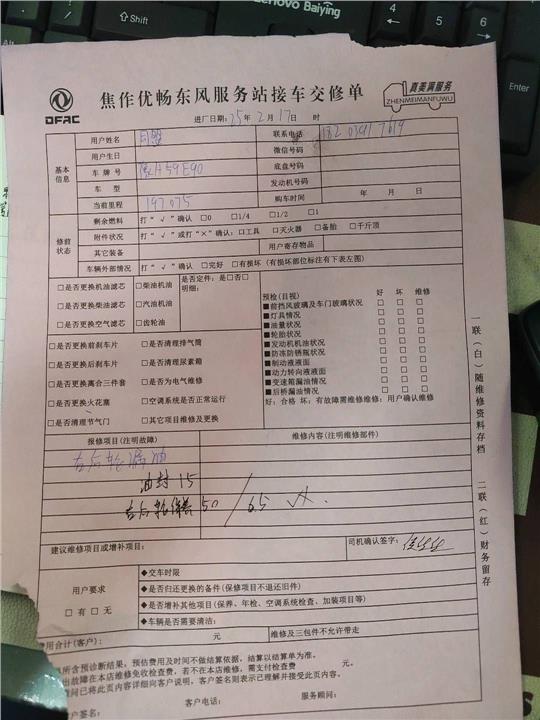 Shift
Lenovo Baiying
4
5
6
Enter
DFAC
焦作优畅东风服务站接车交修单
真美满服务
ZHENMEIMANFUWU
进厂日期:25年2月17日 时
基本信息
用户姓名
联系电话
用户生日
微信号码
车牌号 豫H59E90
底盘号码
车型
发动机号码
当前里程 197075
购车时间 年 月 日
修前状态
剩余燃料 打“√”确认 □0 □1/4 □1/2 □1
附件状况 打“√”或打“×”确认:□工具 □灭火器 □备胎 □千斤顶
其它装备 用户寄存物品
车辆外部情况 打“√”确认 □完好 □有损坏(有损坏部位标注有下表左图)
□是否更换机油滤芯 □柴油机油 是否定件:是□否□
明细:
□是否更换柴油滤芯 □汽油机油
□是否更换空气滤芯 □齿轮油
□是否更换前刹车片 □是否清理排气筒
□是否更换后刹车片 □是否清理尿素箱
□是否更换离合三件套 □是否为电气维修
□是否更换火花塞 □空调系统是否正常运行
□是否清理节气门 □其它项目维修及更换
预检(目视) 好 坏 维修
■前挡风玻璃及车门玻璃状况 □ □ □
■灯具情况 □ □ □
■油量状况 □ □ □
■轮胎状况 □ □ □
■发动机机油状况 □ □ □
■防冻防锈瓶状况 □ □ □
■制动液液面 □ □ □
■动力转向液液面 □ □ □
■变速箱漏油情况 □ □ □
■后桥漏油情况 □ □ □
好:合格 坏:有故障需维修维修:用户确认维修
报修项目(注明故障) 维修内容(注明维修部件)
右后轮漏油
油封 15
右后轮保养 50 / 65
建议维修项目或增补项目:
司机确认签字:
用户要求
□有□无
◆交车时限
◆是否归还更换的备件(保修项目不退还旧件)
◆是否增补其他项目(保养、年检、空调系统检查、加装项目等)
◆车辆是否需要清洁:
费用合计(客户): 元 维修及三包件不允许带走
所含预诊断结果,预估费用及时间不做结算依据,结算以结算单为准。
出故障在本店维修免收检查费,若不在本店维修,需支付检查费 元。
已将此页内容详细向客户说明,客户签名则表示已理解并接受此页内容。
客户签名: 客户电话: 服务顾问:
一联(白)随维修资料存档
二联(红)财务留存